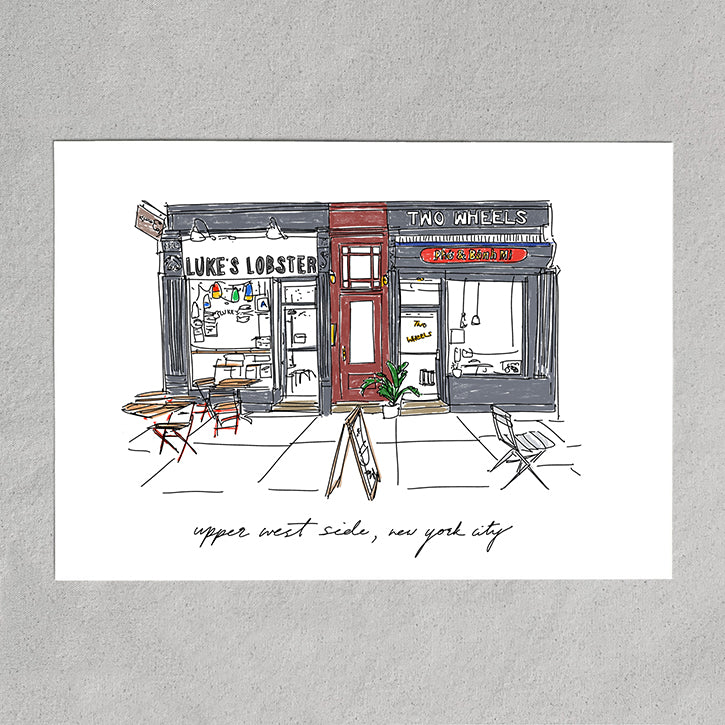 LUKE'S LOBSTER
TWO WHEELS
Phở & Bánh Mì
LUKE'S
TWO
WHEELS
upper west side, new york city